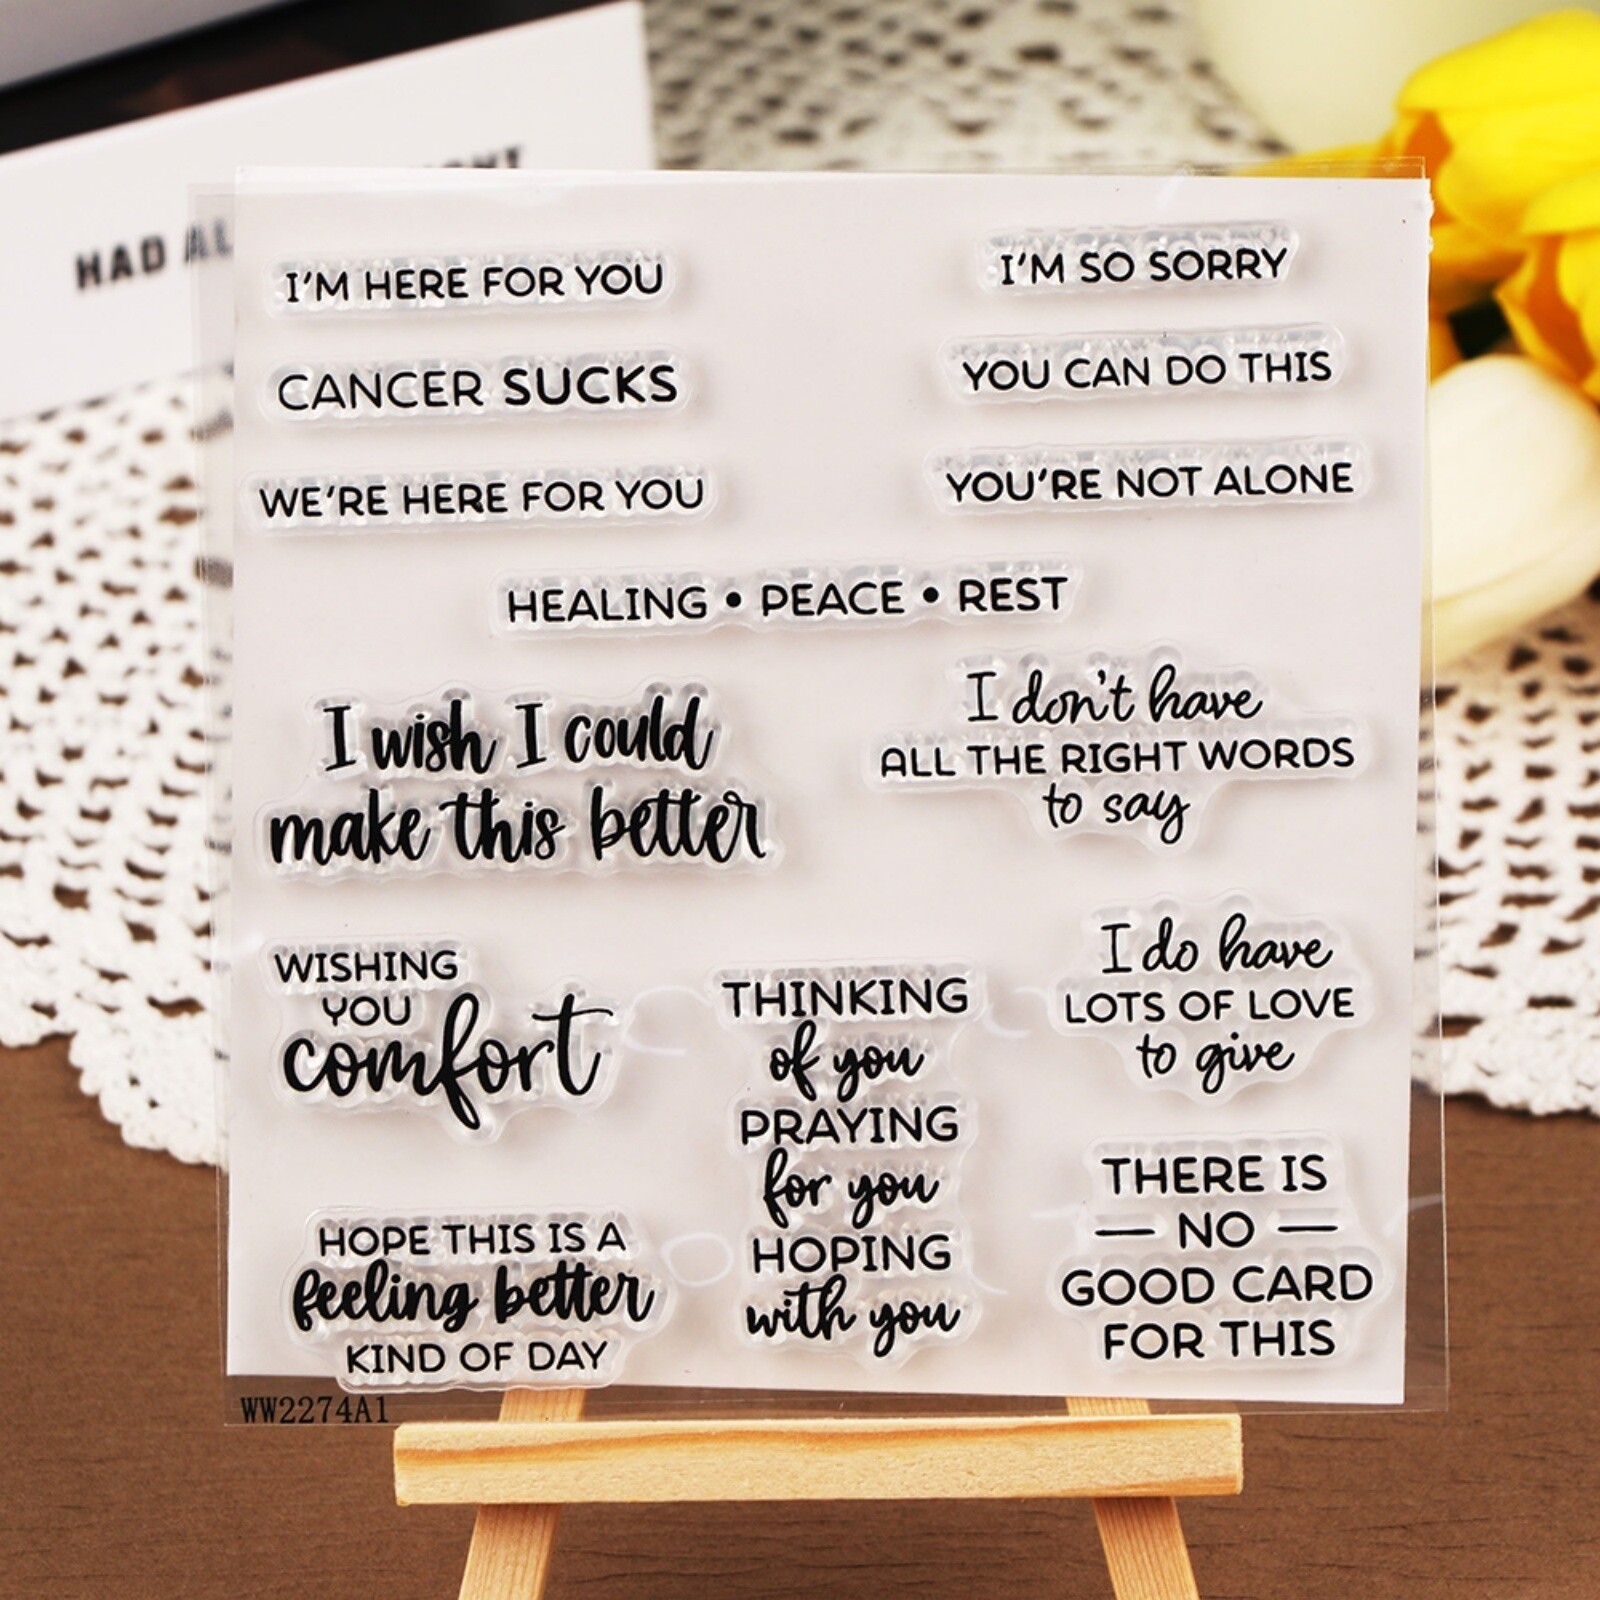 HAD AL
I'M HERE FOR YOU
I'M SO SORRY
CANCER SUCKS
YOU CAN DO THIS
WE'RE HERE FOR YOU
YOU'RE NOT ALONE
HEALING • PEACE • REST
I wish I could
make this better
I don't have
ALL THE RIGHT WORDS
to say
WISHING
YOU
comfort
THINKING
of you
PRAYING
for you
HOPING
with you
I do have
LOTS OF LOVE
to give
HOPE THIS IS A
feeling better
KIND OF DAY
THERE IS
— NO —
GOOD CARD
FOR THIS
WW2274A1